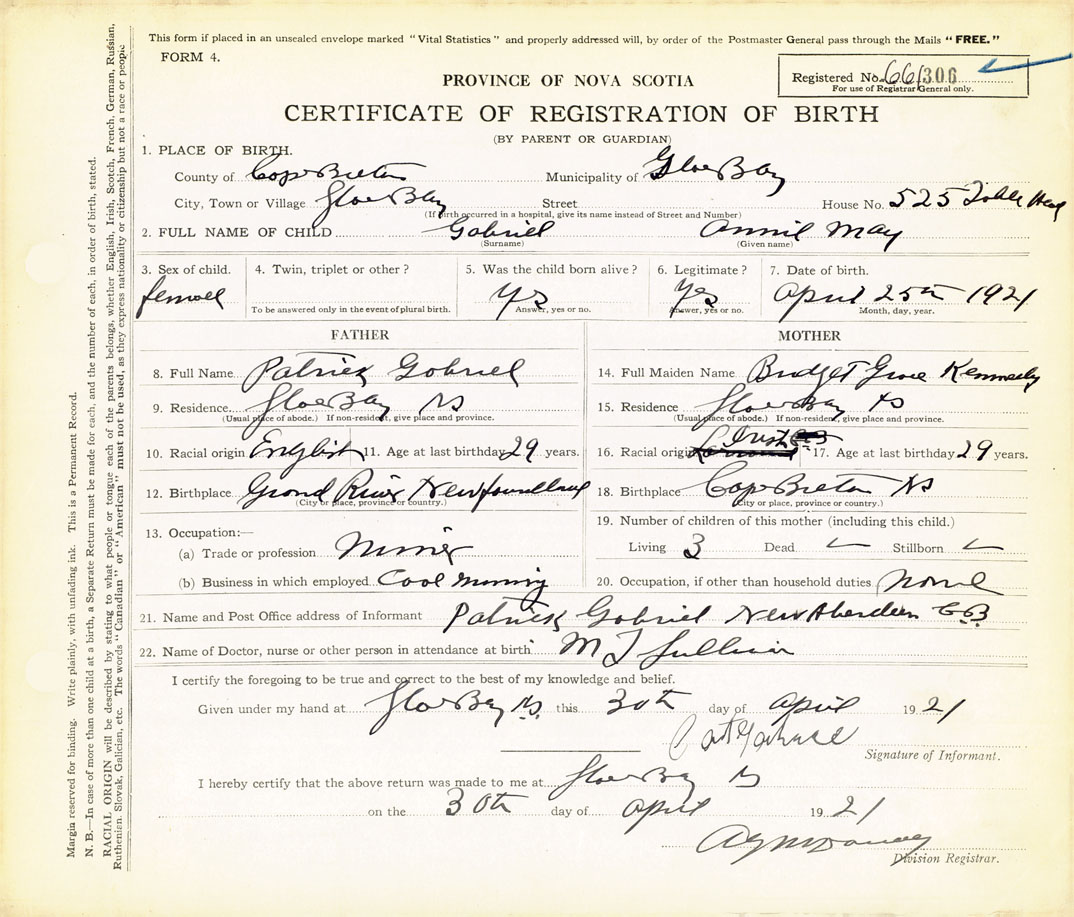 This form if placed in an unsealed envelope marked "Vital Statistics" and properly addressed will, by order of the Postmaster General pass through the Mails "FREE."
FORM 4.
Registered No. 66/306
For use of Registrar General only.
PROVINCE OF NOVA SCOTIA
CERTIFICATE OF REGISTRATION OF BIRTH
(BY PARENT OR GUARDIAN)
1. PLACE OF BIRTH.
County of Cape Breton Municipality of Glace Bay
City, Town or Village Glace Bay Street House No. 525 Table Head
(If birth occurred in a hospital, give its name instead of Street and Number)
2. FULL NAME OF CHILD Gabriel Annie May
(Surname) (Given name)
3. Sex of child. 4. Twin, triplet or other? 5. Was the child born alive? 6. Legitimate? 7. Date of birth.
female yes yes April 25th 1921
To be answered only in the event of plural birth. Answer, yes or no. Answer, yes or no. Month, day, year.
FATHER MOTHER
8. Full Name Patrick Gabriel 14. Full Maiden Name Bridget Grace Kennedy
9. Residence Glace Bay NS 15. Residence Glace Bay NS
(Usual place of abode.) If non-resident, give place and province. (Usual place of abode.) If non-resident, give place and province.
10. Racial origin English 11. Age at last birthday 29 years. 16. Racial origin Irish 17. Age at last birthday 29 years.
12. Birthplace Grand River Newfoundland 18. Birthplace Cape Breton NS
(City or place, province or country.) (City or place, province or country.)
13. Occupation:— 19. Number of children of this mother (including this child.)
(a) Trade or profession Miner Living 3 Dead Stillborn
(b) Business in which employed Coal Mining 20. Occupation, if other than household duties None
21. Name and Post Office address of Informant Patrick Gabriel New Aberdeen C.B
22. Name of Doctor, nurse or other person in attendance at birth M J Sullivan
I certify the foregoing to be true and correct to the best of my knowledge and belief.
Given under my hand at Glace Bay N.S. this 30th day of April 1921
Pat Gabriel
Signature of Informant.
I hereby certify that the above return was made to me at Glace Bay NS
on the 30th day of April 1921
Division Registrar.
Margin reserved for binding. Write plainly, with unfading ink. This is a Permanent Record.
N. B.—In case of more than one child at a birth, a Separate Return must be made for each, and the number of each, in order of birth, stated.
RACIAL ORIGIN will be described by stating to what people or tongue each of the parents belongs, whether English, Irish, Scotch, French, German, Russian,
Ruthenian, Slovak, Galician, etc. The words "Canadian" or "American" must not be used, as they express nationality or citizenship but not a race or people